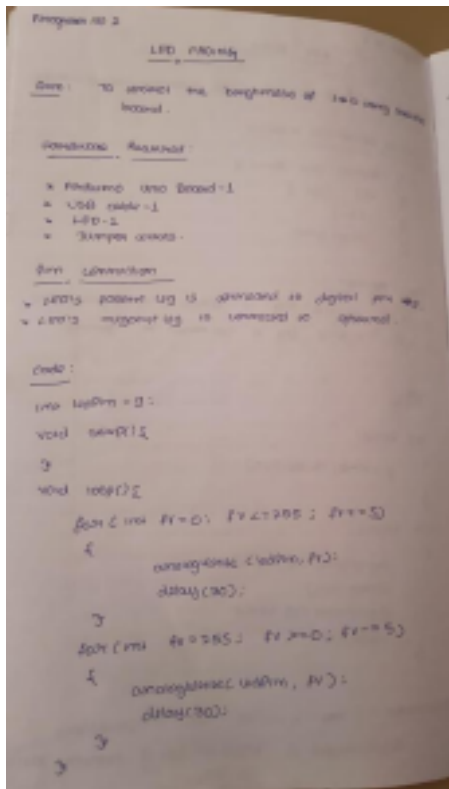 Program no 2
LED FADING
Aim: To control the brightness of LED using
board.
Hardware Required:
* Arduino uno Board-1
* USB cable-1
* LED-1
* Jumper wires.
Pin connection
* LED'S positive leg is connected to digital pin
* LED'S negative leg is connected to ground.
Code:
int ledPin = 9;
void setup(){
}
void loop(){
for (int fv=0; fv<=255; fv+=5)
{
analogWrite (ledPin, fv);
delay(30);
}
for (int fv=255; fv>=0; fv-=5)
{
analogWrite( ledPin, fv);
delay(30);
}
}